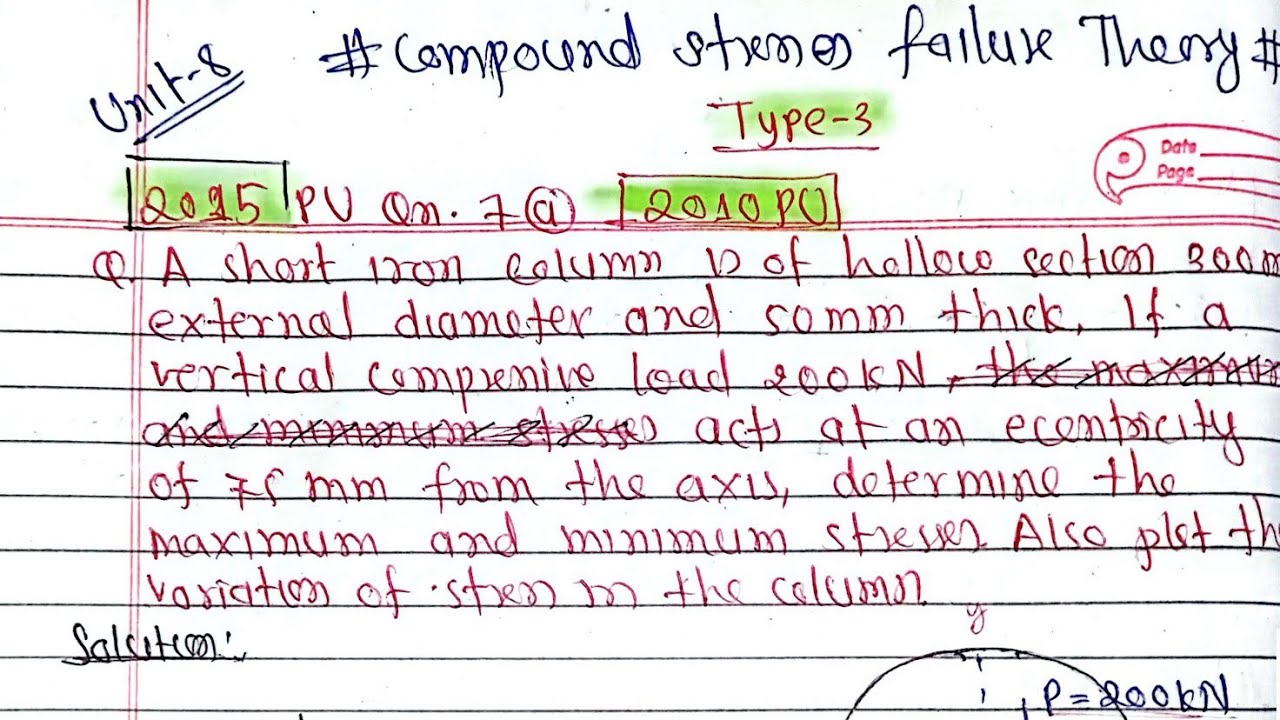 # Compound stress failure Theory #
Unit-8
Type-3
Date
Page
2015 PU Qn. 7 (a) 2010 PU
Q. A short iron column is of hollow section 300m
external diameter and 50mm thick. If a
vertical compressive load 200kN, the maximum
and minimum stresses acts at an ecentricity
of 75 mm from the axis, determine the
maximum and minimum stresses. Also plot th
variation of stress in the column.
Solution:
y
P = 200kN